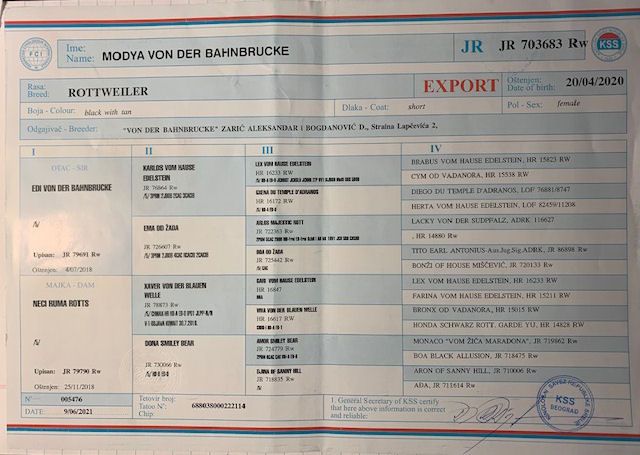 FCI
Ime:
Name: MODYA VON DER BAHNBRUCKE
JR JR 703683 Rw
KSS
Rasa:
Breed: ROTTWEILER
EXPORT
Oštenjen:
Date of birth: 20/04/2020
Boja - Colour: black with tan
Dlaka - Coat: short
Pol - Sex: female
Odgajivač - Breeder: "VON DER BAHNBRUCKE" ZARIĆ ALEKSANDAR i BOGDANOVIĆ D., Straina Lapčevića 2,
I II III IV
OTAC - SIR
EDI VON DER BAHNBRUCKE
Upisan: JR 79691 Rw
Oštenjen: 4/07/2018
MAJKA - DAM
NECI RUMA ROTTS
Upisan: JR 79790 Rw
Oštenjen: 25/11/2018
KARLOS VOM HAUSE
EDELSTEIN
JR 76864 Rw
EMA OD ŽADA
JR 726607 Rw
XAVER VON DER BLAUEN
WELLE
JR 78873 Rw
DONA SMILEY BEAR
JR 730066 Rw
LEX VOM HAUSE EDELSTEIN
HR 16233 Rw
GXENA DU TEMPLE D'ADRANOS
HR 16172 RW
ARLOS MAJESTIC ROTT
JR 722363 Rw
DOA OD ŽADA
JR 725442 Rw
HR 16847
VIVA VON DER BLAUEN WELLE
HR 16617 RW
AMOR SMILEY BEAR
JR 724779 Rw
DJINA OF SANNY HILL
JR 718835 Rw
BRABUS VOM HAUSE EDELSTEIN, HR 15823 RW
CYM OD VADANORA, HR 15538 RW
DIEGO DU TEMPLE D'ADRANOS, LOF 76881/8747
HERTA VOM HAUSE EDELSTEIN, LOF 82459/11208
LACKY VON DER SUDPFALZ, ADRK 116627
, HR 14880 Rw
TITO EARL ANTONIUS-Aus.Jug.Sig.ADRK, JR 86898 Rw
BONŽI OF HOUSE MIŠČEVIĆ, JR 720133 Rw
LEX VOM HAUSE EDELSTEIN, HR 16233 RW
FARINA VOM HAUSE EDELSTEIN, HR 15211 RW
BRONX OD VADANORA, HR 15015 RW
HONDA SCHWARZ ROTT. GARDE YU, HR 14828 RW
MONACO "VOM ŽIČA MARADONA", JR 719862 Rw
BOA BLACK ALLUSION, JR 718475 Rw
ARON OF SANNY HILL, JR 710006 Rw
ADA, JR 711614 Rw
N° 005476
DATE: 9/06/2021
Tetovir broj:
Tatoo N°: 688038000222114
Chip
1. General Secretary of KSS certify
that here above information is correct
and reliable:
KSS
BEOGRAD